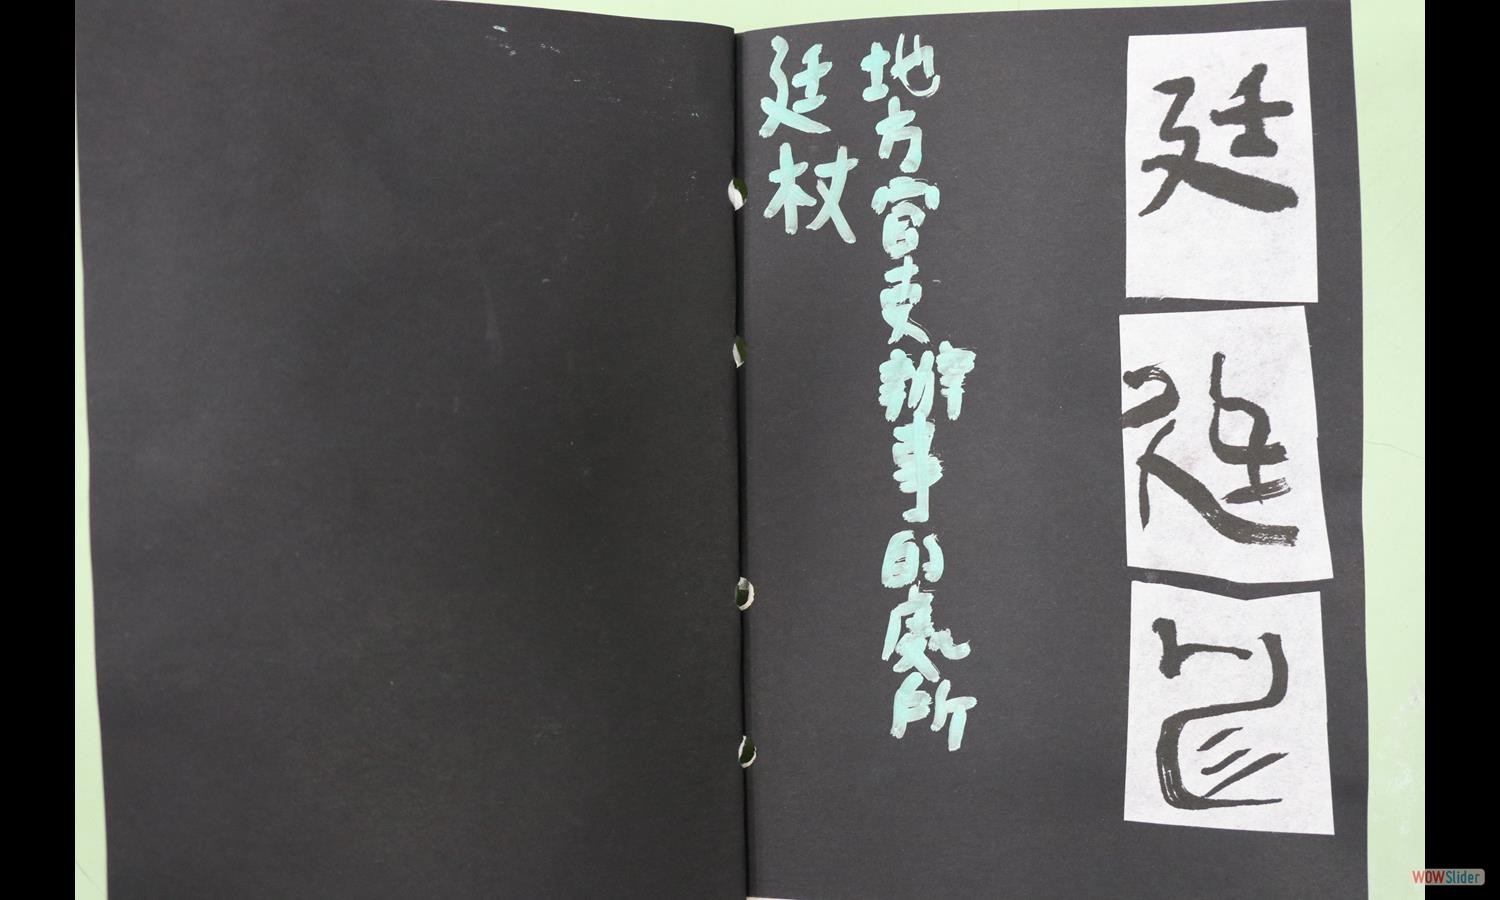 廷
地方官吏辦事的處所
廷杖
WOWSlider